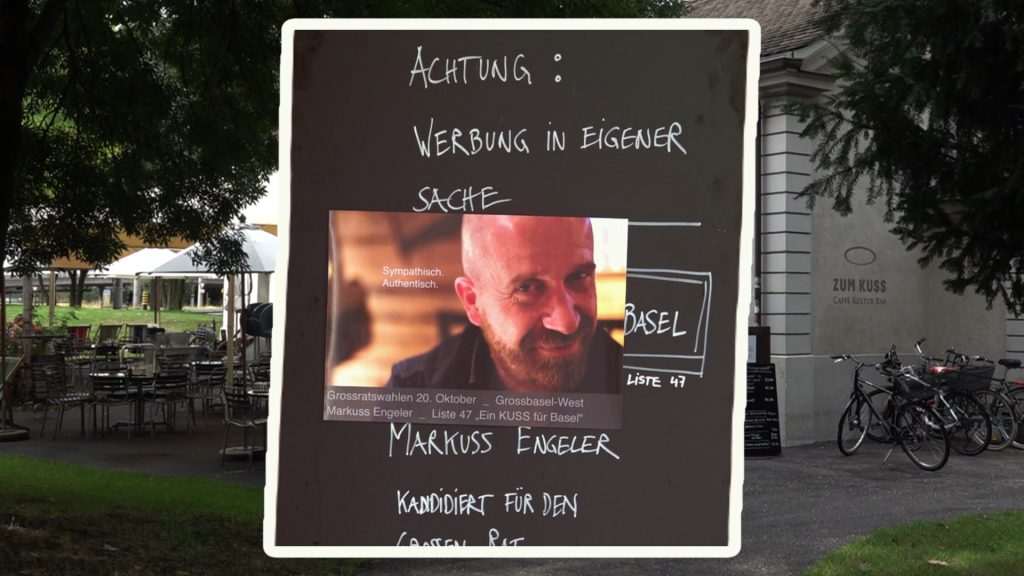 ACHTUNG :
WERBUNG IN EIGENER
SACHE
Sympathisch.
Authentisch.
BASEL
LISTE 47
Grossratswahlen 20. Oktober _ Grossbasel-West
Markuss Engeler _ Liste 47 „Ein KUSS für Basel"
MARKUSS ENGELER
KANDIDIERT FÜR DEN
GROSSEN RAT
ZUM KUSS
CAFFÈ KULTUR BAR